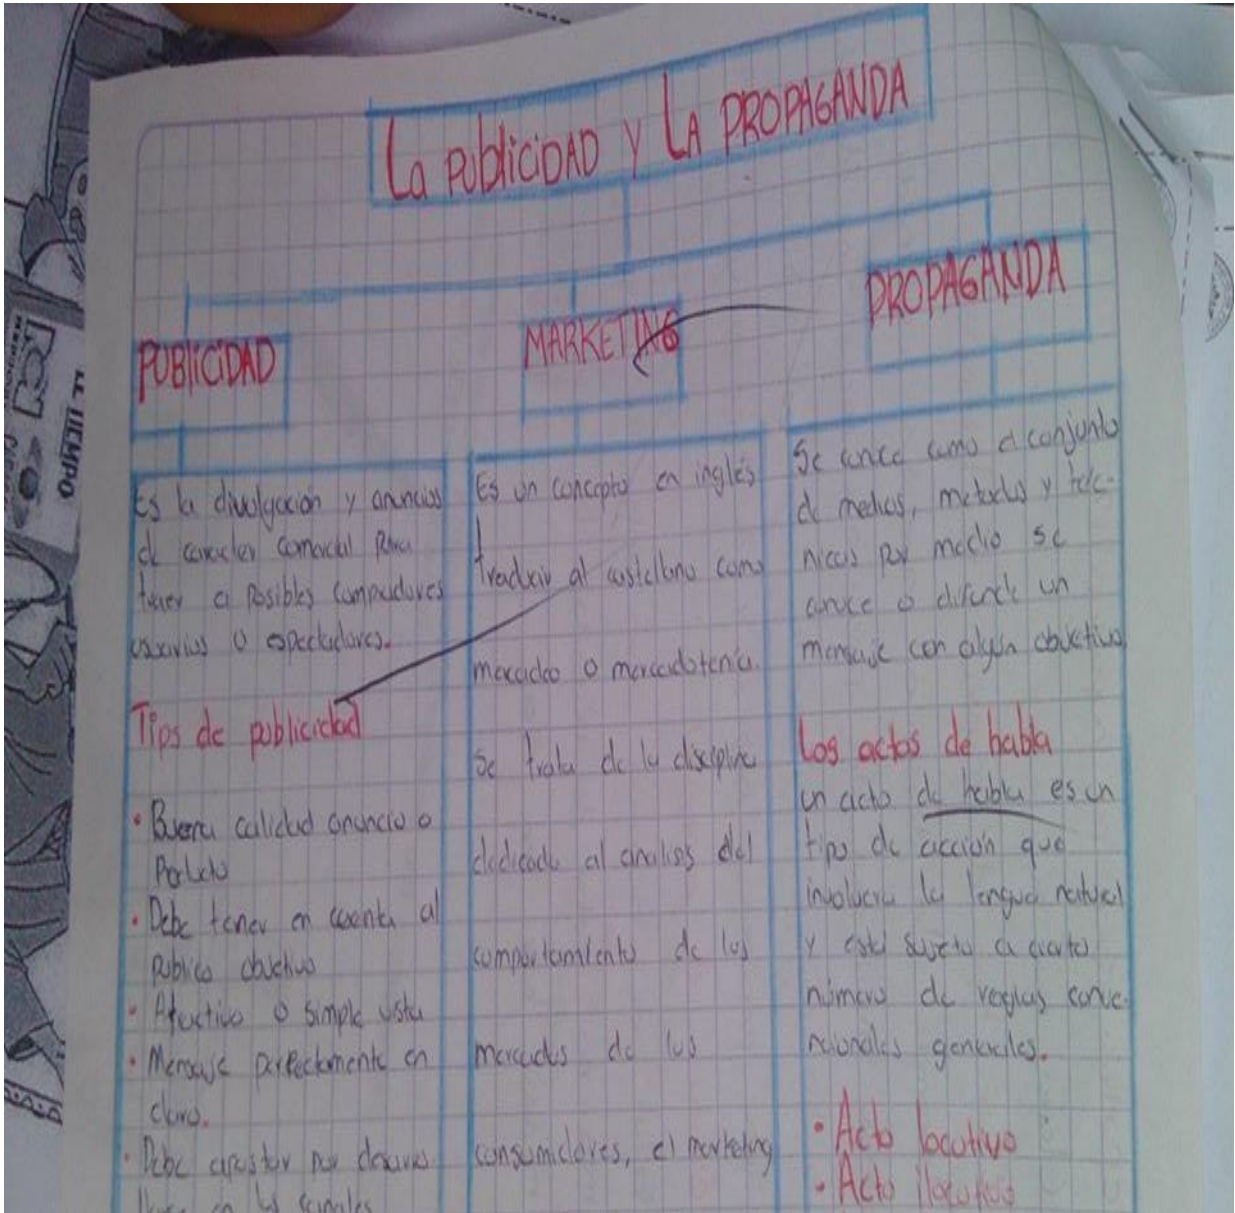 La PUbliCiDAD Y LA PROPAGANDA
PUBliCiDAD
Es la divulgación y anuncios
de caracter comercial para
traer a Posibles compradores
usuarios o espectadores.
Tips de publicidad
• Buena calidad anuncio o
• Debe tener en cuenta al
publico objectivo
• Atractivo a simple vista
• Mensaje perfectamente en
claro.
• Debe apostar por
en las
MARKETING
Es un concepto en inglés
traducir al castellano como
mercadeo o mercadotenia.
Se trata de la disciplina
dedicada al analisis del
comportamiento de los
mercados de los
consumidores, el marketing
PROPAGANDA
Se conce como el conjunto
de medios, metodos y tecc-
nicas por medio se
conoce o difunde un
mensaje con algún objectivo
Los actos de habla
un acto de habla es un
tipo de acción que
involucra la lengua natural
y está sujeto a cierto
número de reglas convc-
nionales generales.
• Acto locutivo
• Acto ilocutivo
EL TIEMPO